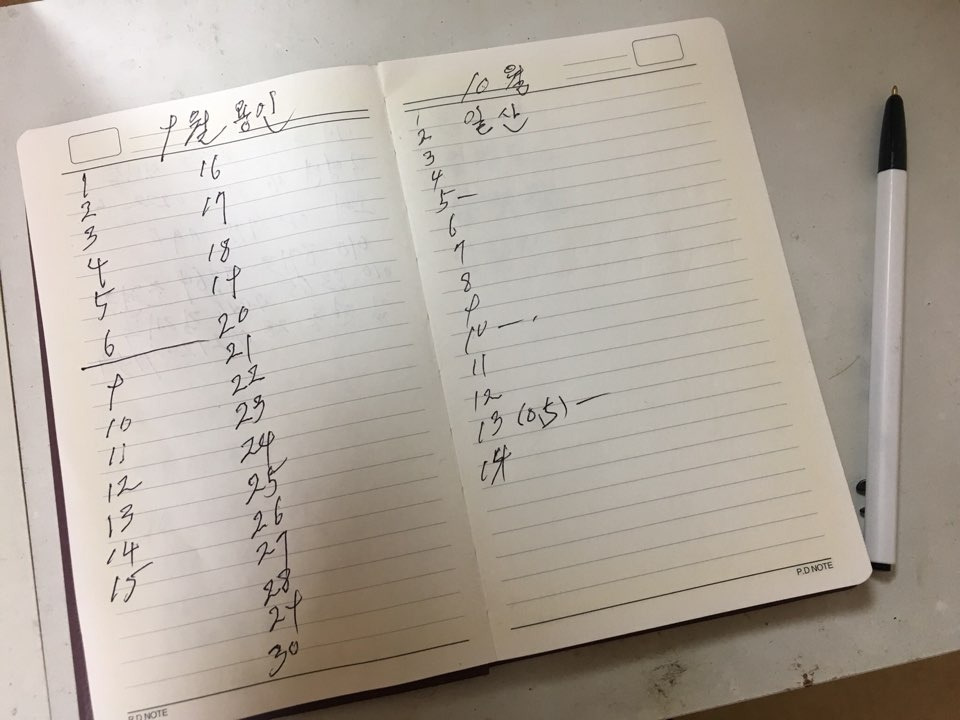 9월 용인
1
2
3
4
5
6
9
10
11
12
13
14
15
16
17
18
19
20
21
22
23
24
25
26
27
28
29
30
P.D NOTE
10월
일산
1
2
3
4
5 —
6
7
8
9
10 — .
11
12
13 (0,5) —
14
P.D NOTE